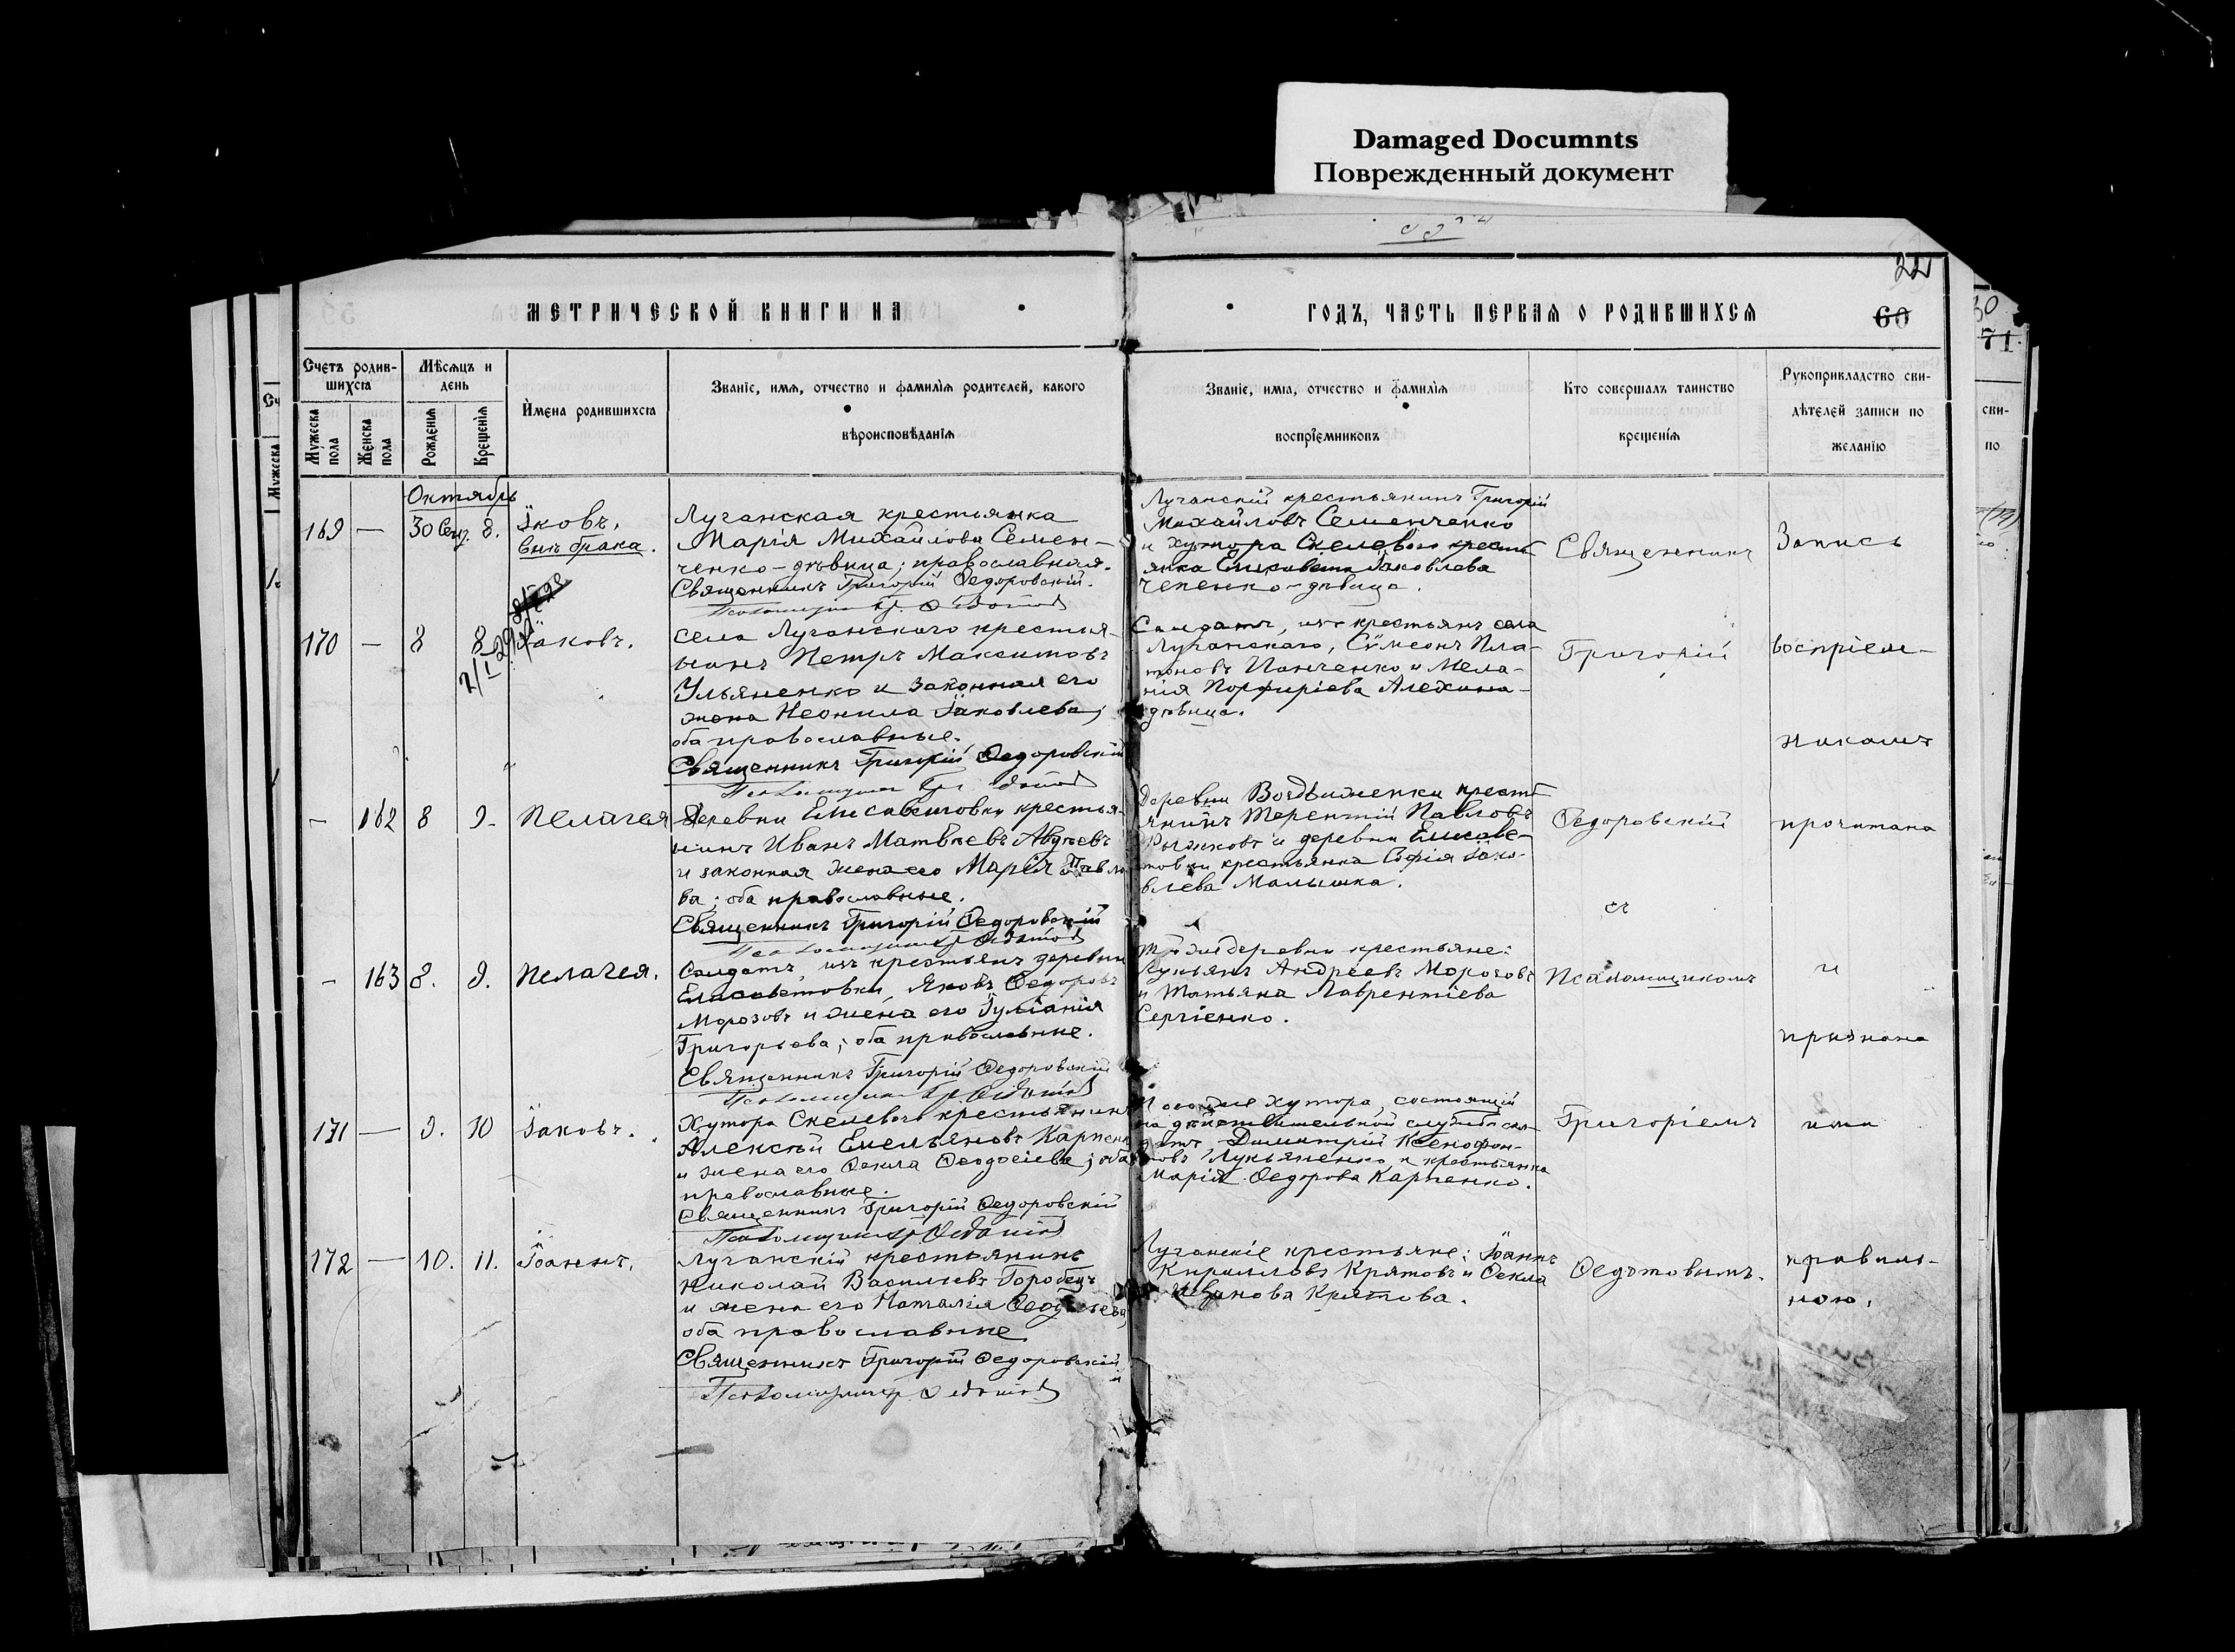 Damaged Documnts
Поврежденный документ
221
МЕТРИЧЕСКОЙ КНИГИ НА
ГОДЪ, ЧАСТЬ ПЕРВАЯ О РОДИВШИХСЯ
60
Счетъ родив-
шихся
Мѣсяцъ и
день
Мужеска
пола
Женска
пола
Рожденія
Крещенія
Имена родившихся
Званіе, имя, отчество и фамилія родителей, какого
вѣроисповѣданія
Званіе, имя, отчество и фамилія
воспріемниковъ
Кто совершалъ таинство
крещенія
Рукоприкладство сви-
дѣтелей записи по
желанію
Октябрь
169 — 30 Сент. 8. Яковъ,
внѣ брака.
Луганская крестьянка
Марія Михайлова Семен-
ченко - дѣвица; православная.
Священникъ Григорій Ѳедоровскій.
Псаломщикъ Гр. Ѳедотов
Луганскій крестьянинъ Григорій
Михайловъ Семенченко
и хутора Скелеваго кресть-
янка Елисавета Іаковлева
Чепенко - дѣвица.
170 — 8 8 Іаковъ.
села Луганскаго крестья-
нинъ Петръ Максимовъ
Ульяненко и законная его
жена Неонила Іаковлева;
оба православные.
Священникъ Григорій Ѳедоровскій
Псаломщикъ Гр. Ѳедотов
Солдатъ, изъ крестьянъ села
Луганскаго, Сѵмеонъ Пла-
тоновъ Панченко и Мела-
нія Порфиріева Алехина -
дѣвица.
— 162 8 9. Пелагея
Деревни Елисаветовки крестья-
нинъ Иванъ Матвѣевъ Авдѣевъ
и законная жена его Марія Павло-
ва; оба православные.
Священникъ Григорій Ѳедоровскій
Псаломщикъ Гр. Ѳедотов
Деревни Воздвиженки кресть-
янинъ Терентій Павловъ
Рыжковъ и деревни Елисаве-
товки крестьянка Софія Іако-
влева Малышка.
— 163 8. 9. Пелагея.
Солдатъ, изъ крестьянъ деревни
Елисаветовки, Яковъ Ѳедоровъ
Морозовъ и жена его Іуліанія
Григорьева; оба православные.
Священникъ Григорій Ѳедоровскій
Псаломщикъ Гр. Ѳедотов
Той же деревни крестьяне:
Лукьянъ Андреевъ Морозовъ
и Татьяна Лаврентіева
Сергіенко.
171 — 9. 10 Іаковъ.
Хутора Скелеваго крестьянинъ
Алексѣй Емельяновъ Карпенко
и жена его Ѳекла Ѳеодосіева; оба
православные.
Священникъ Григорій Ѳедоровскій
Псаломщикъ Гр. Ѳедотов
хутора, состоящій
на дѣйствительной службѣ сол-
датъ Димитрій Ксенофон-
товъ Лукьяненко и крестьянка
Марія Ѳедорова Карпенко.
172 — 10. 11. Іоаннъ.
Луганскій крестьянинъ
Николай Васильевъ Горобецъ
и жена его Наталія
оба православные
Священникъ Григорій Ѳедоровскій
Псаломщикъ Гр. Ѳедотов
Луганскіе крестьяне: Іоаннъ
Кирилловъ Крятовъ и Ѳекла
Иванова Крятова.
Священникъ
Григорій
Ѳедоровскій
съ
Псаломщикомъ
Григоріемъ
Ѳедотовымъ.
Запись
воспріем-
никамъ
прочитана
и
признана
ими
правиль-
ною.
71